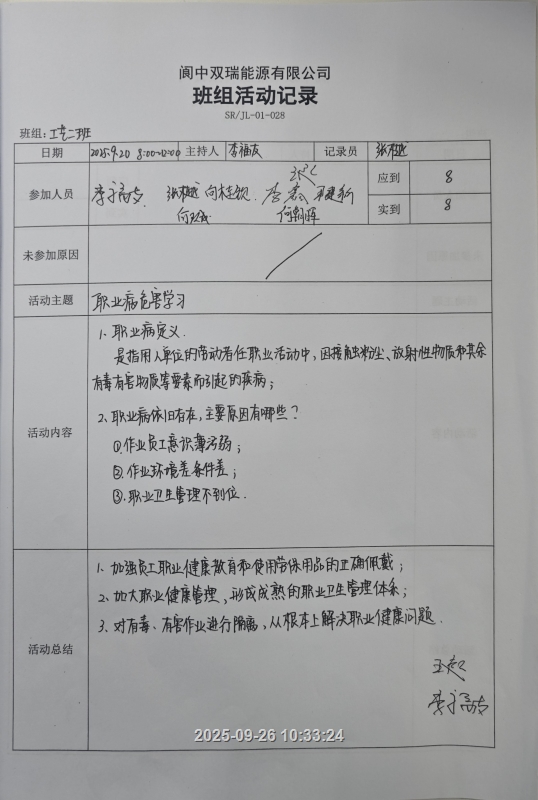 阆中双瑞能源有限公司
班组活动记录
SR/JL-01-028
班组：工艺二班
日期 2025.9.20 8:00~12:00 主持人 李福友 记录员
参加人员 应到 8
何朝晖 实到 8
未参加原因
活动主题 职业病危害学习
活动内容
1、职业病定义.
是指用人单位的劳动者在职业活动中，因接触粉尘、放射性物质和其余
有毒有害物质等要素而引起的疾病；
2、职业病依旧存在，主要原因有哪些？
①.作业员工意识薄弱；
②.作业环境差条件差；
③.职业卫生管理不到位.
活动总结
1、加强员工职业健康教育和使用劳保用品的正确佩戴；
2、加大职业健康管理，形成成熟的职业卫生管理体系；
3、对有毒、有害作业进行隔离，从根本上解决职业健康问题.
2025-09-26 10:33:24